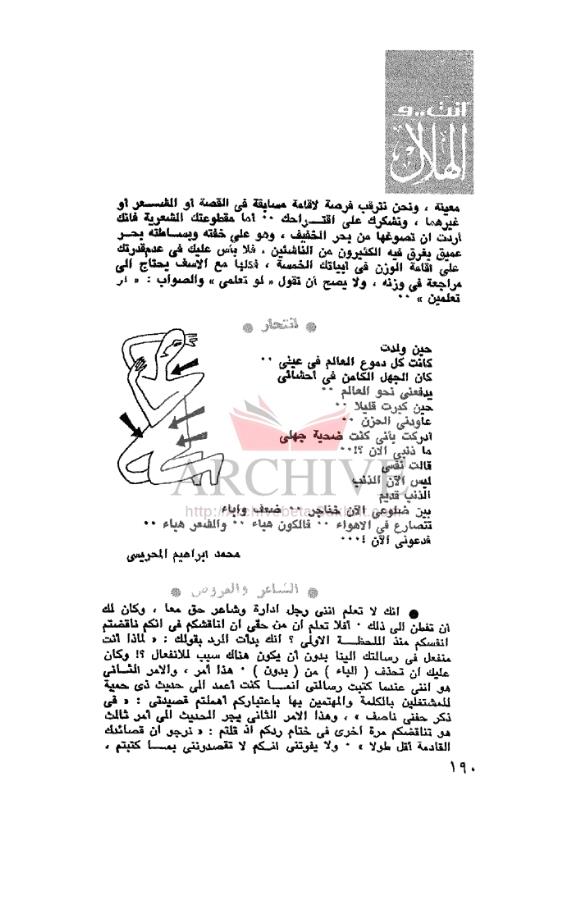 أنت..و
الهلال
معينة ، ونحن نترقب فرصة لاقامة مسابقة في القصة أو الشعر أو
غيرهما ، ونشكرك على اقتراحك ٠٠ أما مقطوعتك الشعرية فانك
أردت أن تصوغها من بحر الخفيف ، وهو على خفته وبساطته بحر
عميق يغرق فيه الكثيرون من الناشئين ، فلا بأس عليك في عدم قدرتك
على اقامة الوزن في أبياتك الخمسة ، فكلها مع الاسف يحتاج الى
مراجعة في وزنه ، ولا يصح أن تقول « لو تعلمى » والصواب : « لو
تعلمين » ٠٠
انتحار
حين ولدت
كانت كل دموع العالم في عينى ٠٠
كان الجهل الكامن في أحشائى
يدفعنى نحو العالم ٠٠
حين كبرت قليلا ٠٠
عاودنى الحزن ٠٠
أدركت بأنى كنت ضحية جهلى
ما ذنبى الآن ؟!٠٠
قالت نفسى
ليس الآن الذنب
الذنب قديم
بين ضلوعى الآن خناجر ٠٠ ضعف واباء
تتصارع في الاهواء ٠٠ فالكون هباء ٠٠ والشعر هباء ٠٠
فدعونى الآن !٠٠٠
محمد ابراهيم المحريسى
الشاعر والعروض
● انك لا تعلم اننى رجل ادارة وشاعر حق معا ، وكان لك
أن تفطن الى ذلك ٠ أفلا تعلم أن من حقى أن اناقشكم في انكم ناقضتم
أنفسكم منذ اللحظة الاولى ؟ أنك بدأت الرد بقولك : « لماذا أنت
منفعل في رسالتك الينا بدون أن يكون هناك سبب للانفعال ؟! وكان
عليك أن تحذف ( الباء ) من ( بدون ) ٠ هذا أمر ، والامر الثانى
هو اننى عندما كتبت رسالتى انما كنت أعمد الى حديث ذى حمية
للمشتغلين بالكلمة والمهتمين بها باعتباركم أهملتم قصيدتى : « في
ذكر حفنى ناصف » ، وهذا الامر الثانى يجر الحديث الى أمر ثالث
هو تناقضكم مرة أخرى في ختام ردكم اذ قلتم : « نرجو أن قصائدك
القادمة أقل طولا » ٠ ولا يفوتنى انكم لا تقصدوننى بما كتبتم ،
١٩٠
ARCHIVE